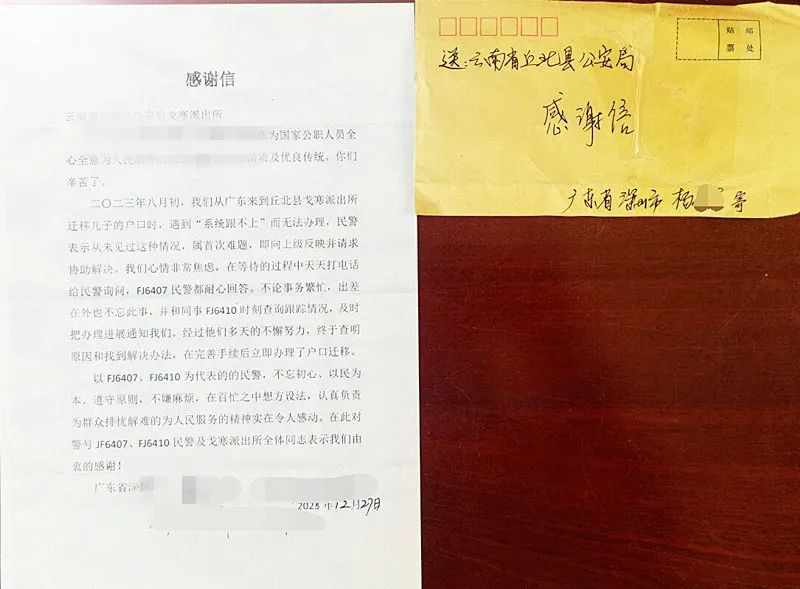 感谢信
云南省丘北县公安局戈寒派出所
作为国家公职人员全
心全意为人民服务的 品质及优良传统。你们
辛苦了。
二〇二三年八月初，我们从广东来到丘北县戈寒派出所
迁移儿子的户口时，遇到“系统跟不上”而无法办理，民警
表示从未见过这种情况，属首次难题，即向上级反映并请求
协助解决。我们心情非常焦虑，在等待的过程中天天打电话
给民警询问，FJ6407 民警都耐心回答。不论事务繁忙，出差
在外也不忘此事，并和同事 FJ6410 时刻查询跟踪情况，及时
把办理进展通知我们。经过他们多天的不懈努力，终于查明
原因和找到解决办法，在完善手续后立即办理了户口迁移。
以 FJ6407、FJ6410 为代表的的民警，不忘初心、以民为
本。遵守原则，不嫌麻烦，在百忙之中想方设法，认真负责
为群众排忧解难的为人民服务的精神实在令人感动。在此对
警号 JF6407、FJ6410 民警及戈寒派出所全体同志表示我们由
衷的感谢！
广东省深
2023 年12月27日
贴 邮
票 处
送：云南省丘北县公安局
感谢信
广东省深圳市 杨 寄